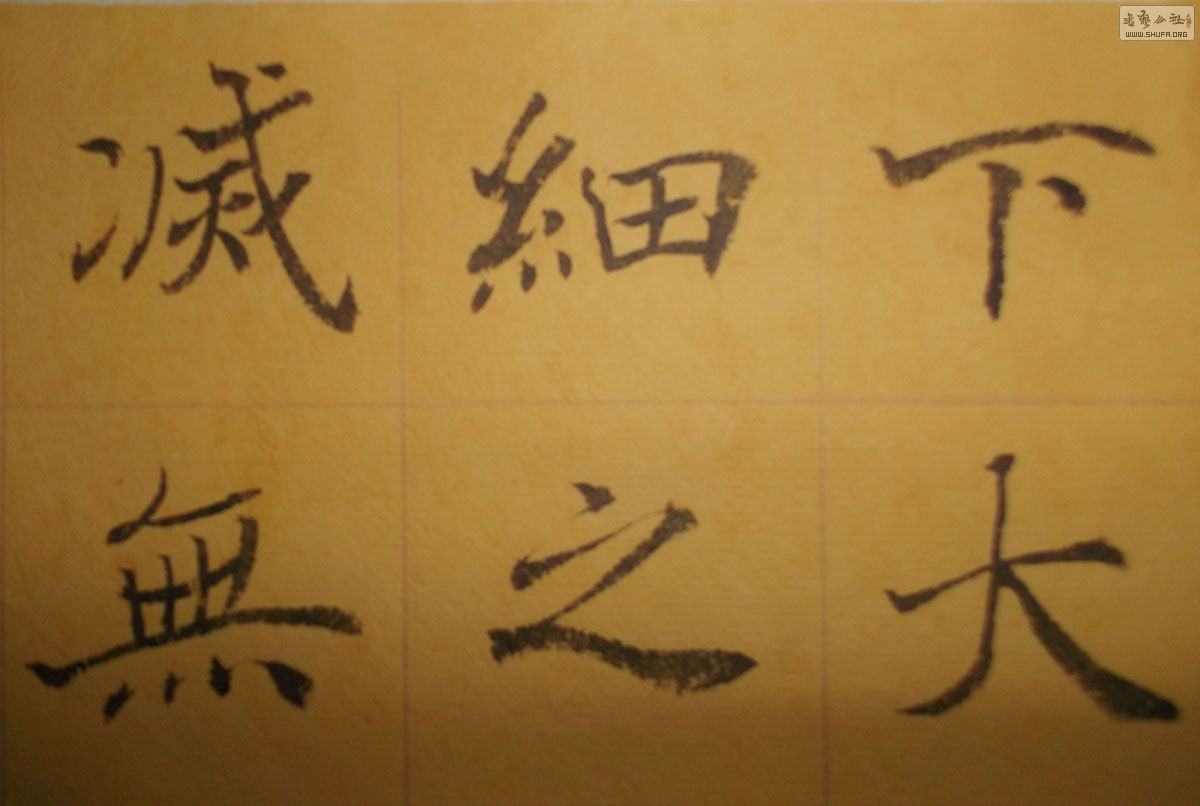 下大
細之
滅無
書藝公社
WWW.SHUFA.ORG